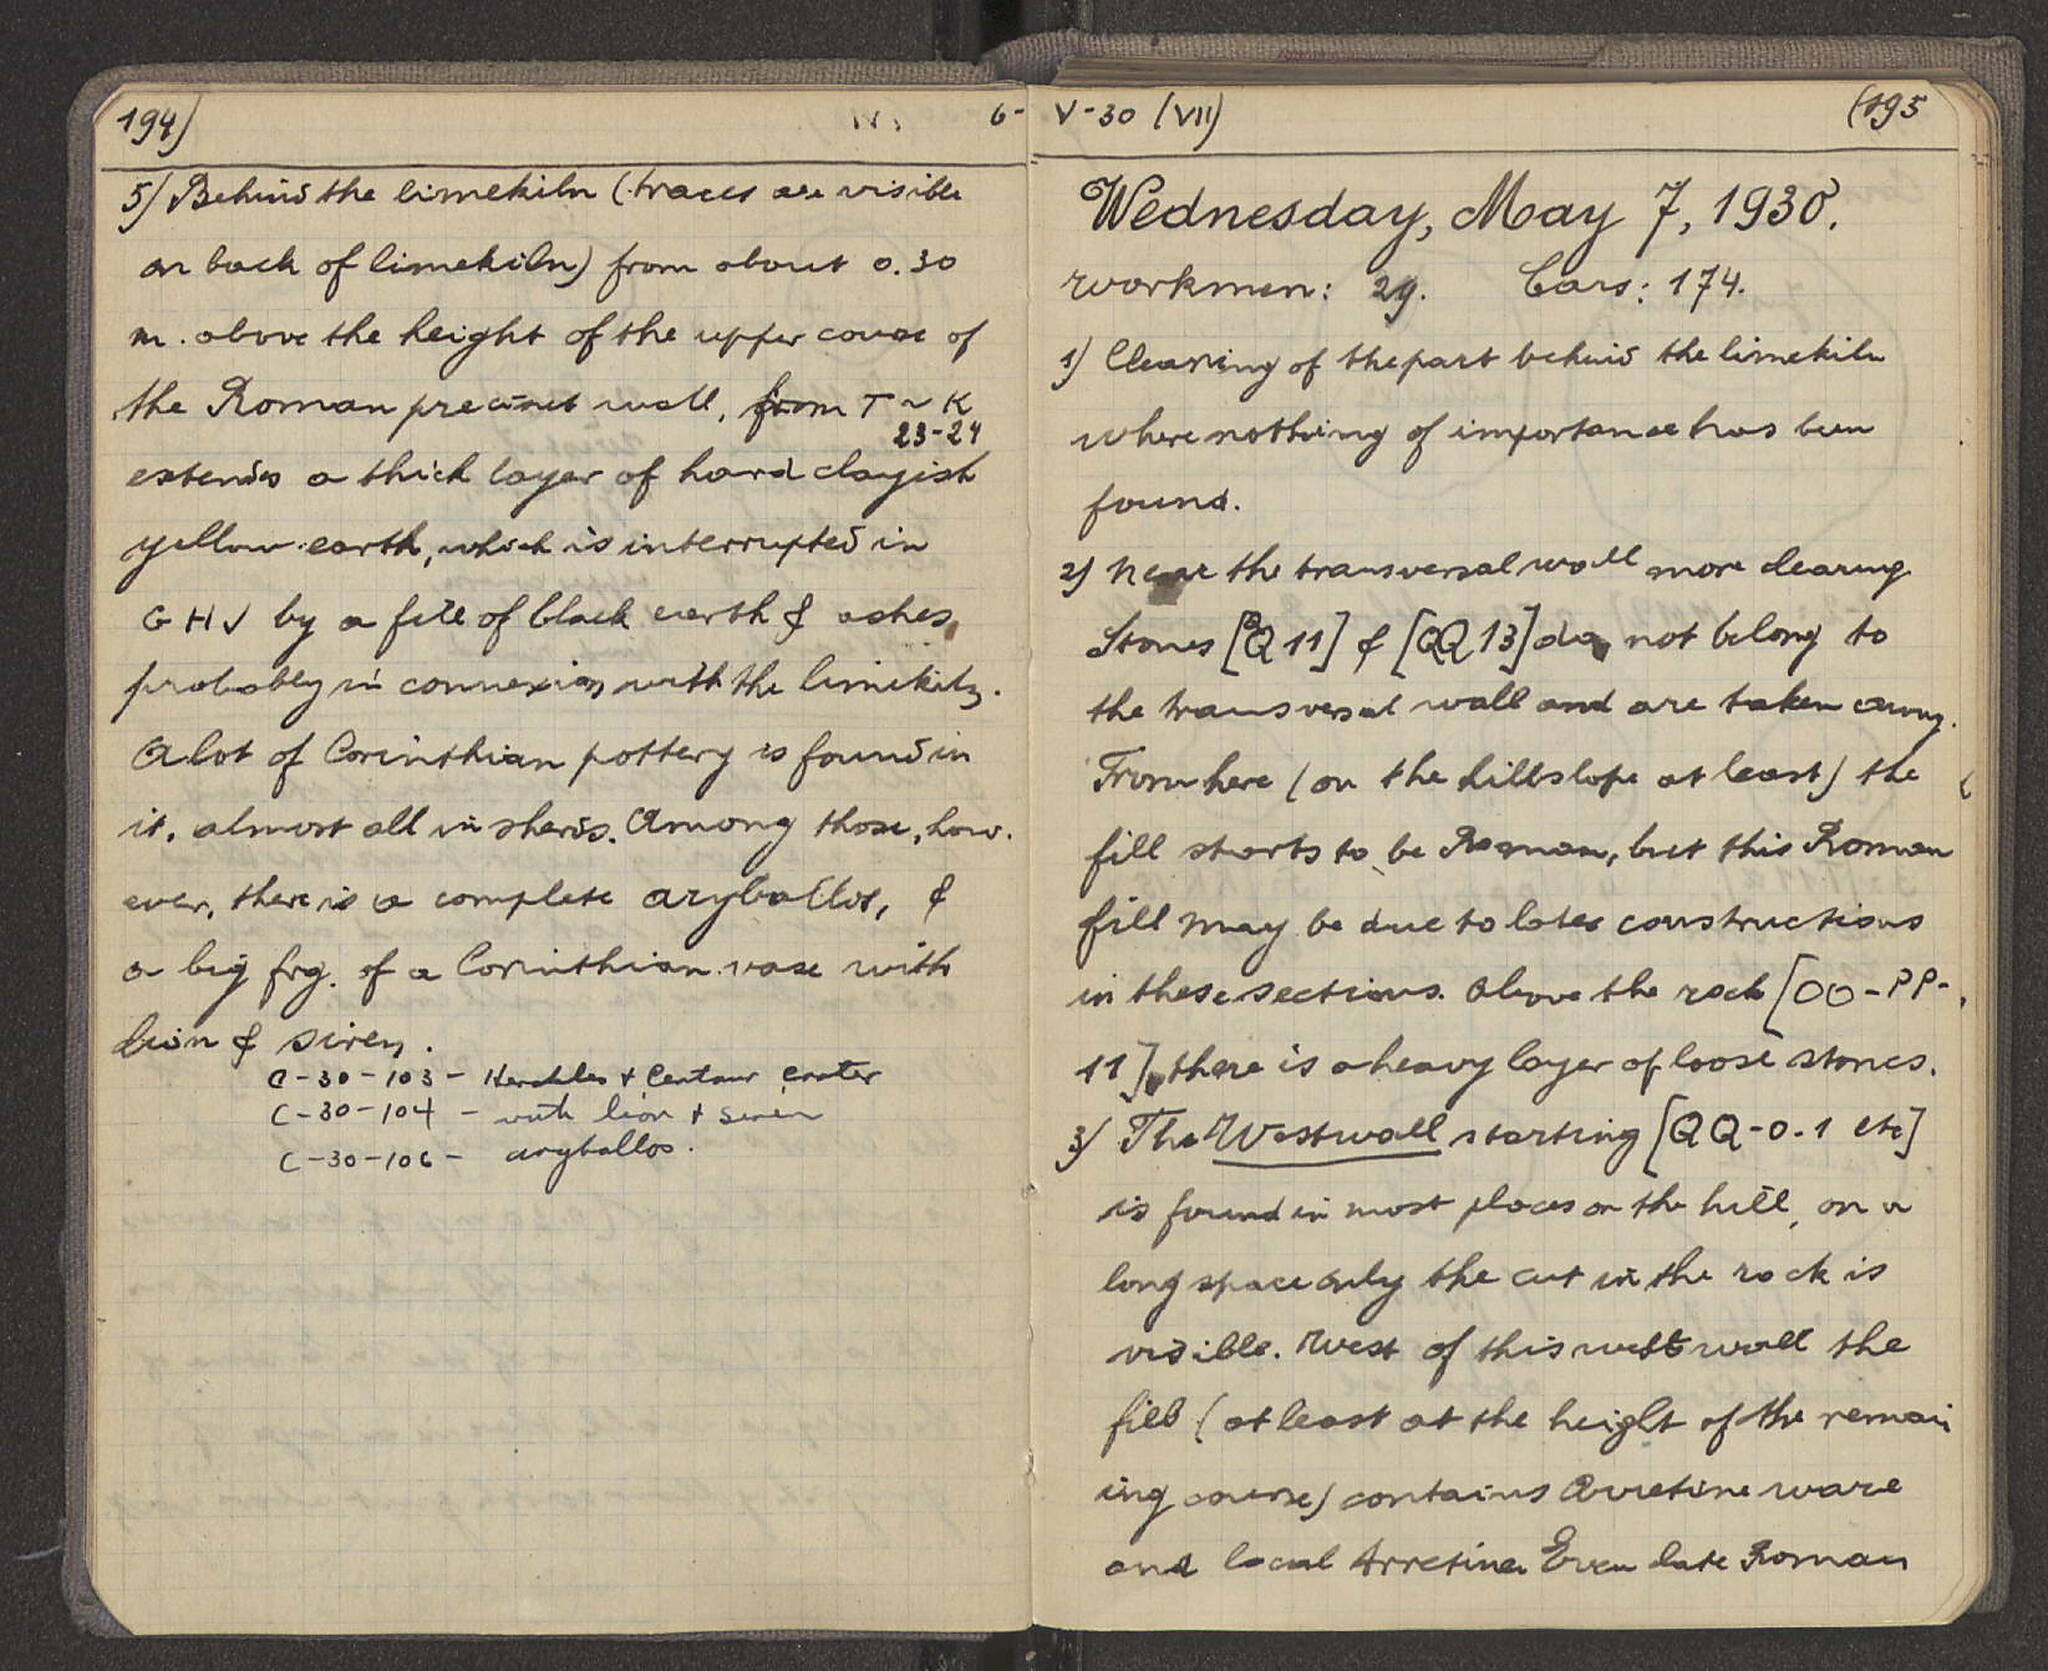 194)
6-
5) Behind the limekiln (traces are visible
on back of limekiln) from about 0.30
m. above the height of the upper course of
the Roman precinct wall, from T ~ K
23-24
extends a thick layer of hard clayish
yellow earth, which is interrupted in
G H J by a fill of black earth & ashes,
probably in connexion with the limekiln.
A lot of Corinthian pottery is found in
it, almost all in sherds. Among those, how-
ever, there is a complete aryballos, &
a big frg. of a Corinthian vase with
lion & siren.
C-30-103 - Herakles + Centaur crater
C-30-104 - with lion + siren
C-30-106 - aryballos.
V-30 (VII)
(195
Wednesday, May 7, 1930.
Workmen: 29. Cars: 174.
1) Clearing of the part behind the limekiln
where nothing of importance has been
found.
2) Near the transversal wall more clearing
Stones [QQ 11] & [QQ 13] do not belong to
the transversal wall and are taken away.
From here (on the hillslope at least) the
fill starts to be Roman, but this Roman
fill may be due to later constructions
in these sections. Above the rock [OO-PP-
11], there is a heavy layer of loose stones.
3) The Westwall starting [QQ-0.1 etc]
is found in most places on the hill, on a
long space only the cut in the rock is
visible. West of this west wall the
fill (at least at the height of the remain
ing course) contains Arretine ware
and local Arretine. Even late Roman